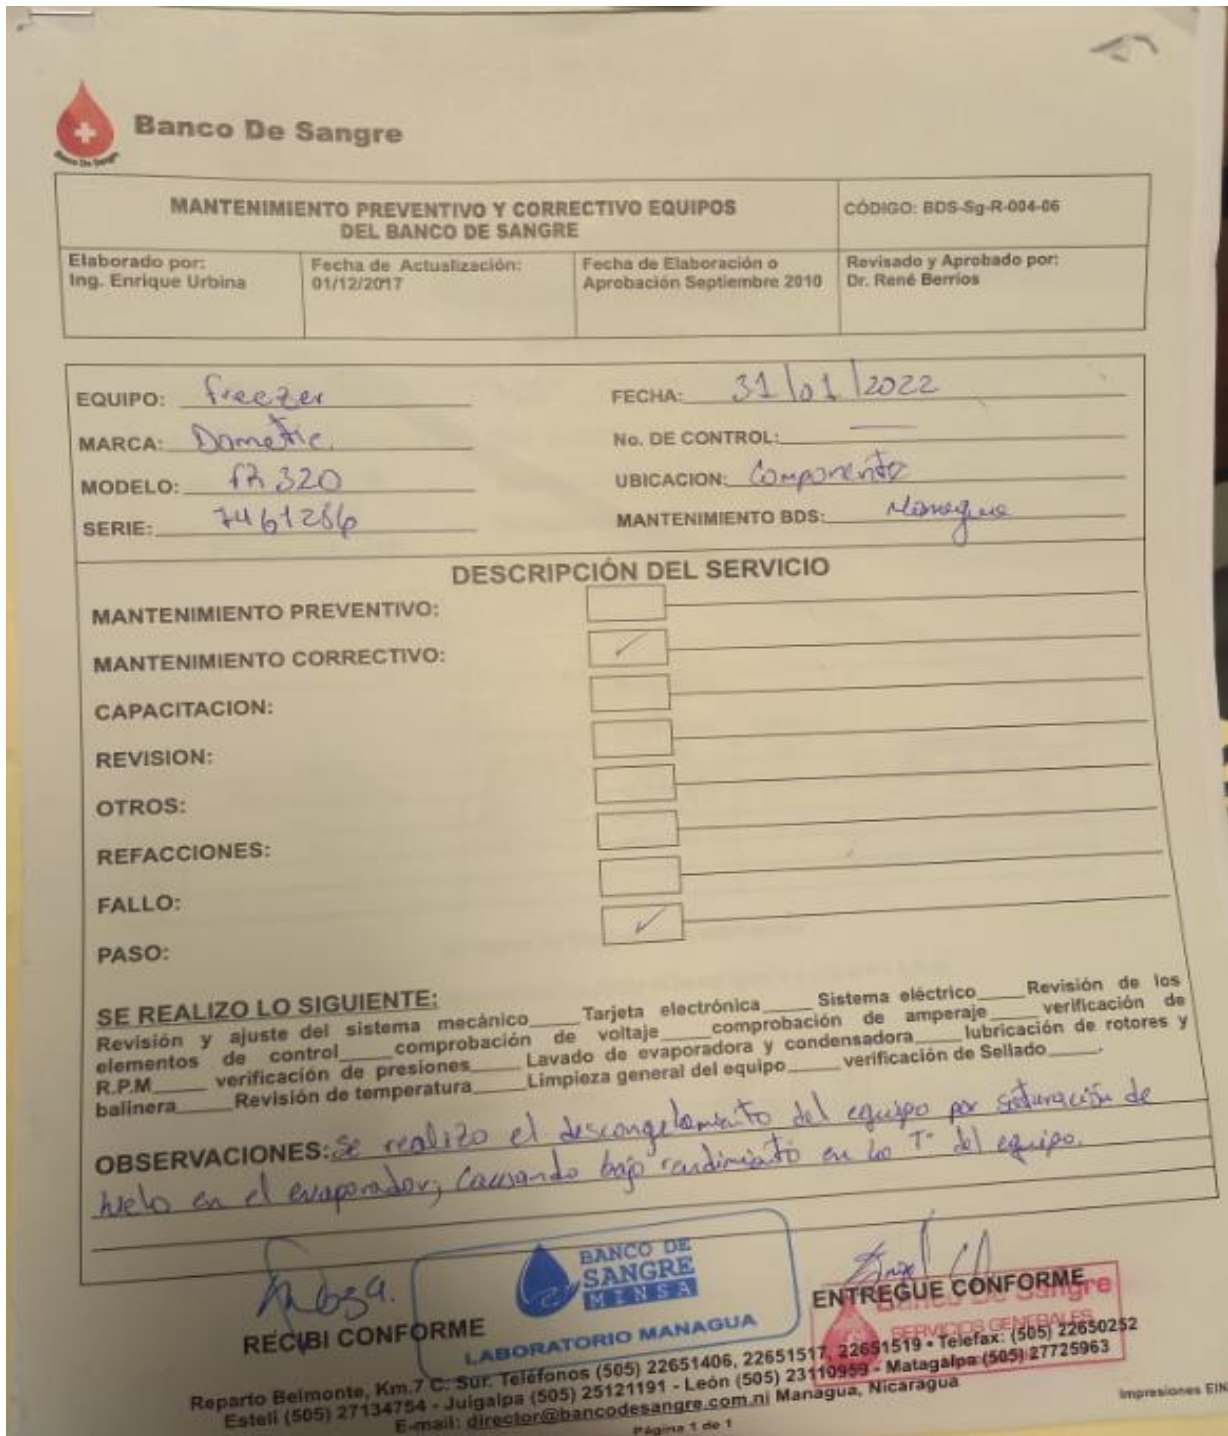 Banco De Sangre
Banco De Sangre
MANTENIMIENTO PREVENTIVO Y CORRECTIVO EQUIPOS
DEL BANCO DE SANGRE
CÓDIGO: BDS-Sg-R-004-06
Elaborado por:
Ing. Enrique Urbina
Fecha de Actualización:
01/12/2017
Fecha de Elaboración o
Aprobación Septiembre 2010
Revisado y Aprobado por:
Dr. René Berríos
EQUIPO: freezer
FECHA: 31/01/2022
MARCA: Dometic.
No. DE CONTROL: —
MODELO: fr 320
UBICACION: Componente
SERIE: 7461286
MANTENIMIENTO BDS: Managua
DESCRIPCIÓN DEL SERVICIO
MANTENIMIENTO PREVENTIVO:
MANTENIMIENTO CORRECTIVO: ✓
CAPACITACION:
REVISION:
OTROS:
REFACCIONES:
FALLO:
PASO: ✓
SE REALIZO LO SIGUIENTE:
Revisión y ajuste del sistema mecánico____ Tarjeta electrónica____ Sistema eléctrico____ Revisión de los
elementos de control____ comprobación de voltaje____ comprobación de amperaje____ verificación de
R.P.M____ verificación de presiones____ Lavado de evaporadora y condensadora____ lubricación de rotores y
balinera____ Revisión de temperatura____ Limpieza general del equipo____ verificación de Sellado____.
OBSERVACIONES: Se realizo el descongelamiento del equipo por saturación de
hielo en el evaporador, causando bajo rendimiento en la T° del equipo.
BANCO DE
SANGRE
MINSA
LABORATORIO MANAGUA
RECIBI CONFORME
ENTREGUE CONFORME
Banco De Sangre
SERVICIOS GENERALES
Reparto Belmonte, Km.7 C. Sur. Teléfonos (505) 22651406, 22651517, 22651519 • Telefax: (505) 22650252
Estelí (505) 27134754 - Juigalpa (505) 25121191 - León (505) 23110959 - Matagalpa (505) 27725963
E-mail: director@bancodesangre.com.ni Managua, Nicaragua
Página 1 de 1
Impresiones EIN